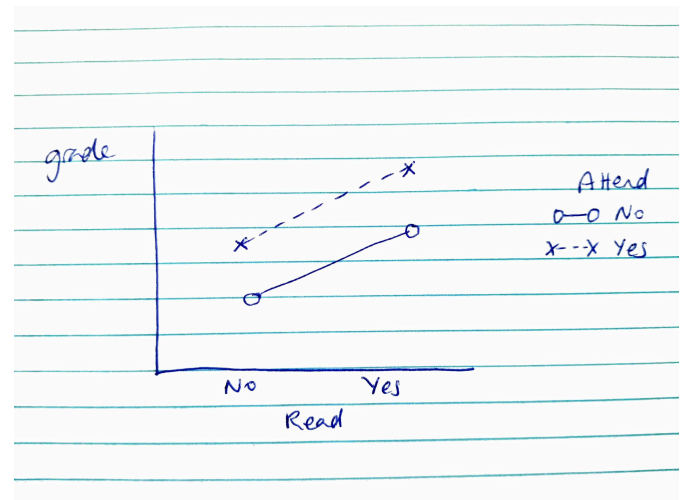 grade
Attend
o—o No
x---x Yes
No Yes
Read